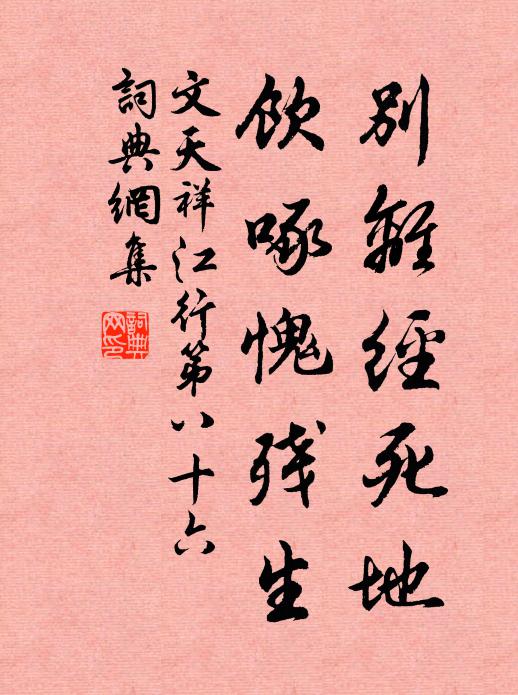 别離經死地
飲啄愧残生
文天祥江行第八十六
詞典網集
詞典網印